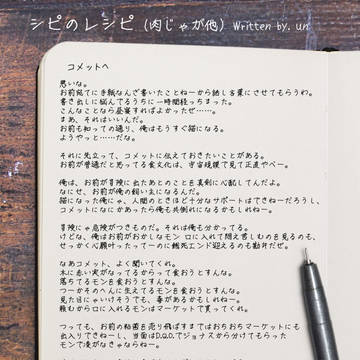 シピのレシピ (肉じゃが他) Written by. un
コメットへ
悪いな。
お前宛てに手紙なんぞ書いたことねーから話し言葉にさせてもらうわ。
書き出しに悩んでるうちに一時間経っちまった。
こんなことなら昼寝すればよかったぜ……。
まあ、それはいいんだ。
お前も知っての通り、俺はもうすぐ猫になる。
ようやっと……だな。
それに先立って、コメットに伝えておきたいことがある。
お前が普通だと思ってる食文化は、宇宙規模で見て正直やべー。
俺は、お前が冒険に出たあとのことを真剣に心配してんだよ。
なにせ、お前が俺の飼い主になるんだ。
猫になった俺にゃ、人間のときほど十分なサポートはできねーだろうし、
コメットになにかあったら俺も共倒れになるかもしれねー。
冒険にゃ危険がつきものだ。それは俺も分かってる。
けどな、俺はお前がおかしなモン口に入れて悶え苦しむのを見るのも、
せっかく心願叶ったってーのに餓死エンド迎えるのも勘弁だぜ。
なあコメット、よく聞いてくれ。
木に赤い実がなってるからって食おうとすんな。
落ちてるモンを食おうとすんな。
つーかそのへんに生えてるモンを食おうとすんな。
見た目じゃいけそうでも、毒があるかもしれねー。
頼むから口に入れるモンはマーケットで買ってくれ。
つっても、お前の粘菌を売り飛ばすまではおちおちマーケットにも
出入りできねーし、当面はD.Q.O.でジョナスから分けてもらった
モンで凌がなきゃならねー。